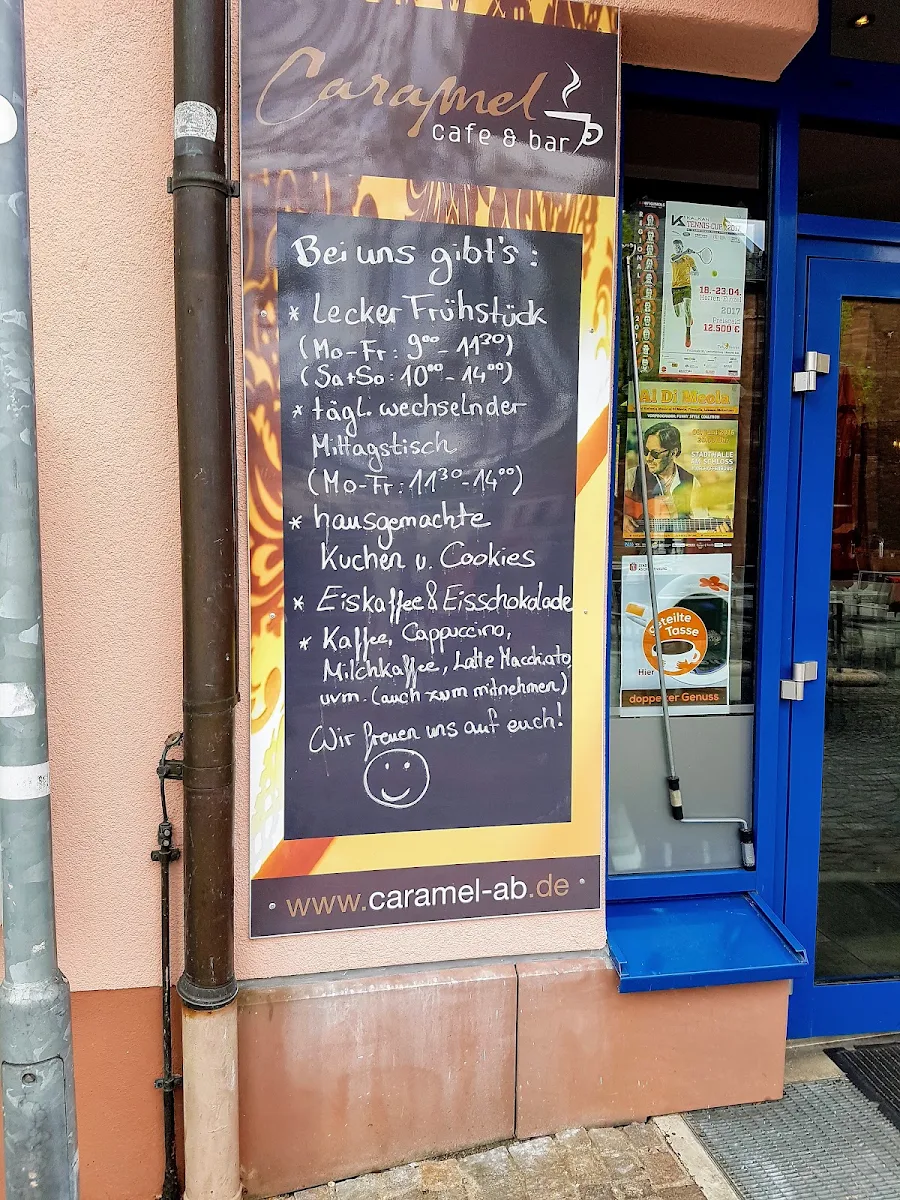 Caramel
cafe & bar
Bei uns gibt's:
* Lecker Frühstück
(Mo-Fr: 9⁰⁰ - 11³⁰)
(Sa+So: 10⁰⁰ - 14⁰⁰)
* tägl. wechselnder
Mittagstisch
(Mo-Fr: 11³⁰ - 14⁰⁰)
* hausgemachte
Kuchen u. Cookies
* Eiskaffee & Eisschokolade
* Kaffee, Cappuccino,
Milchkaffee, Latte Macchiato,
uvm. (auch zum mitnehmen)
Wir freuen uns auf euch!
www.caramel-ab.de
TENNIS CUP 2017
18.-23.04.
Herren Einzel
2017
Preisgeld
12.500 €
Al Di Meola
STADTHALLE
AM SCHLOSS
geteilte
Tasse
Hier
doppelter Genuss